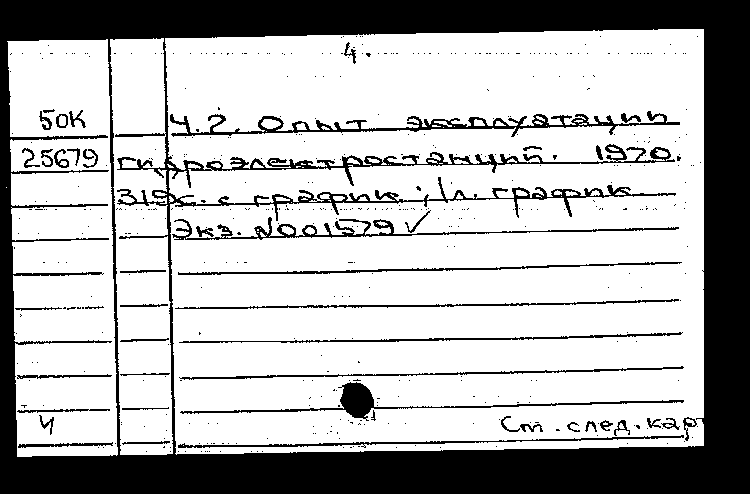 4.
БОК Ч.2. Опыт эксплуатации
25679 гидроэлектростанций. 1970.
319с. с график.; 1л. график
Экз. №001579 ✓
Ч См. след. карт